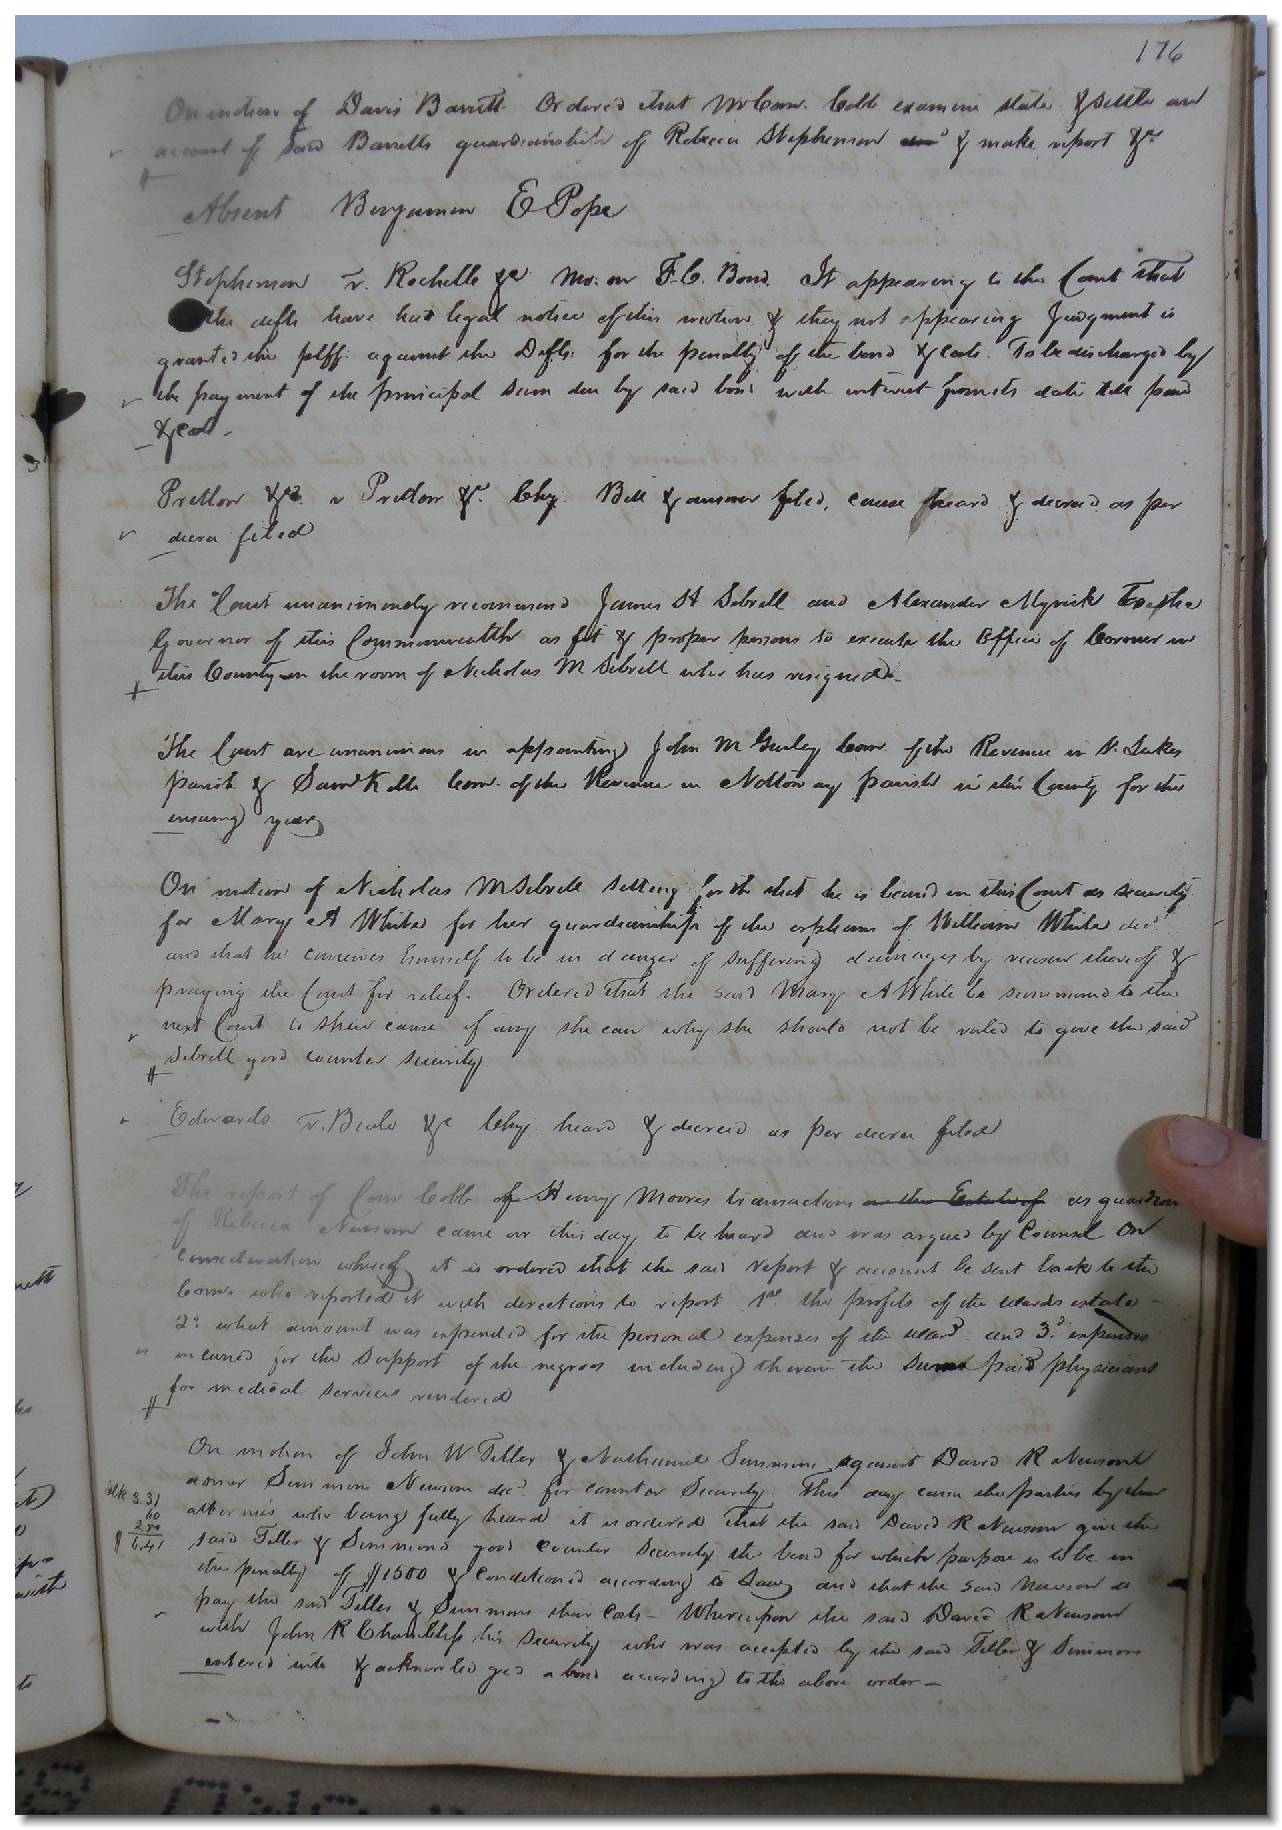 176
On motion of Davis Barrett Ordered that Mr Com. Cobb examine state & settle an
account of said Barretts guardianship of Rebecca Stephenson & make report &c
Absent Benjamin E Pope
Stephenson v. Rochelle &c Mo. on F.C. Bond. It appearing to the Court that
the defts have had legal notice of this motion & they not appearing Judgment is
granted the plff against the Defts. for the penalty of the bond & Costs. To be discharged by
the payment of the principal sum due by said bond with interest from its date till paid
& Cost.
Pretlow &c. v Pretlow &c. Chy. Bill & answer filed, cause heard & decreed as per
decree filed
The Court unanimously recommend James H Sebrell and Alexander Myrick To the
Governor of this Commonwealth as fit & proper persons to execute the Office of Coroner in
this County in the room of Nicholas M Sebrell who has resigned.
The Court are unanimous in appointing John M Gurley Com. of the Revenue in St. Lukes
parish & Saml Kello Com. of the Revenue in Nottoway parish in this County for the
ensuing year
On motion of Nicholas M Sebrell setting forth that he is bound in this Court as security
for Mary A White for her guardianship of the orphans of William White decd
and that he conceives himself to be in danger of suffering damages by reason thereof &
praying the Court for relief. Ordered that the said Mary A White be summoned to the
next Court to shew cause if any she can why she should not be ruled to give the said
Sebrell good counter security
Edwards v. Beale &c Chy heard & decreed as per decree filed
The report of Com Cobb of Henry Moores transactions on the Estate of as guardian
of Rebecca Newsom came on this day to be heard and was argued by Counsel On
consideration whereof it is ordered that the said report & account be sent back to the
Comr. who reported it with directions to report 1st. the profits of the wards estate
2d. what amount was expended for the personal expenses of the ward. and 3d. expenses
incurred for the support of the negroes including therein the sums paid physicians
for medical services rendered
On motion of John W Teller & Nathaniel Simmons against David R Newsom
admor Simmons Newsom decd. for counter Security. This day came the parties by their
attornies who being fully heard it is ordered that the said David R Newsom give the
said Teller & Simmons good Counter Security the bond for which purpose is to be in
the penalty of $1500 & Conditioned according to Law and that the said Newsom do
pay the said Teller & Simmons their Costs - Whereupon the said David R Newsom
with John R Chambliss his Security who was accepted by the said Teller & Simmons
entered into & acknowledged a bond according to the above order -
Clk 3.31
60
2.50
$ 6.41